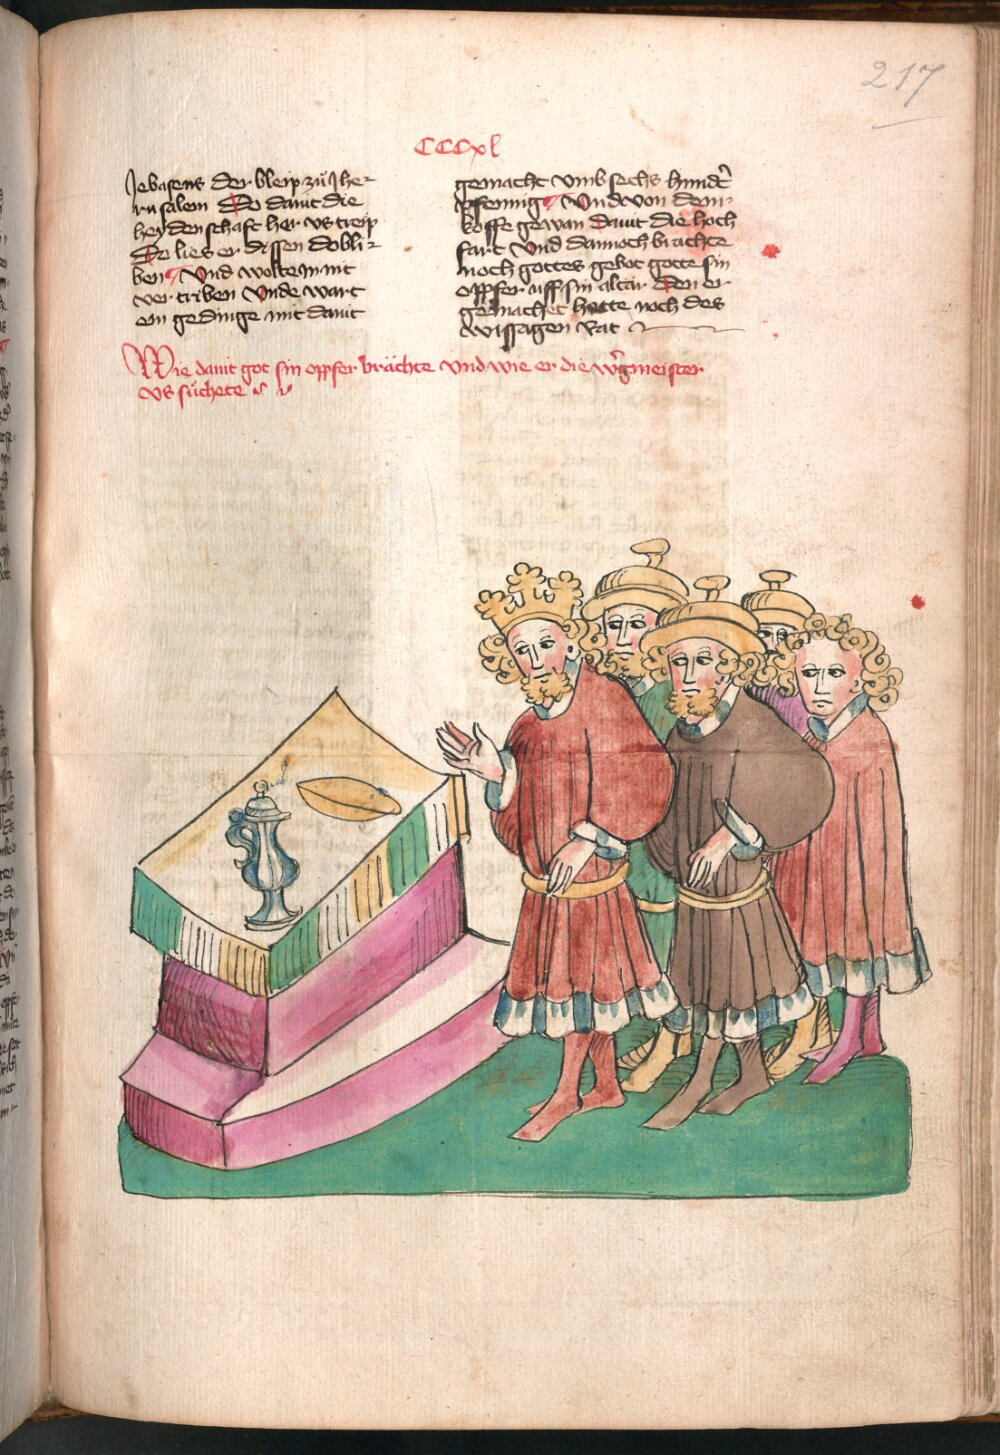 217
CCCxl
Jebasens der bleip zü Jhe-
rusalem Do dauit die
heydenschaft her vs treip
Do lies er dissen do bli-
ben Vnd wolte in nit
ver triben Vnde wart
ein gedinge mit dauit
gemacht vmb sechs hundt
pfennige Vnd von dem
koffe gewan Dauit die hoch
fart Vnd dannoch brachte
noch gottes gebot gotte sin
oppfer uff sin altar Den er
gemachet hette noch des
wissagen Rat
Wie dauit got sin oppfer brächte vnd wie er die meister
vs süchete